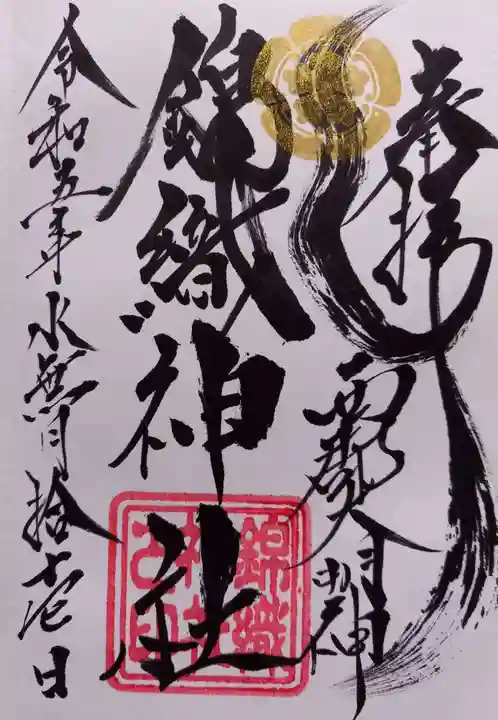 奉拝
錦織神社
令和五年水無月拾日
錦織
神社
之印